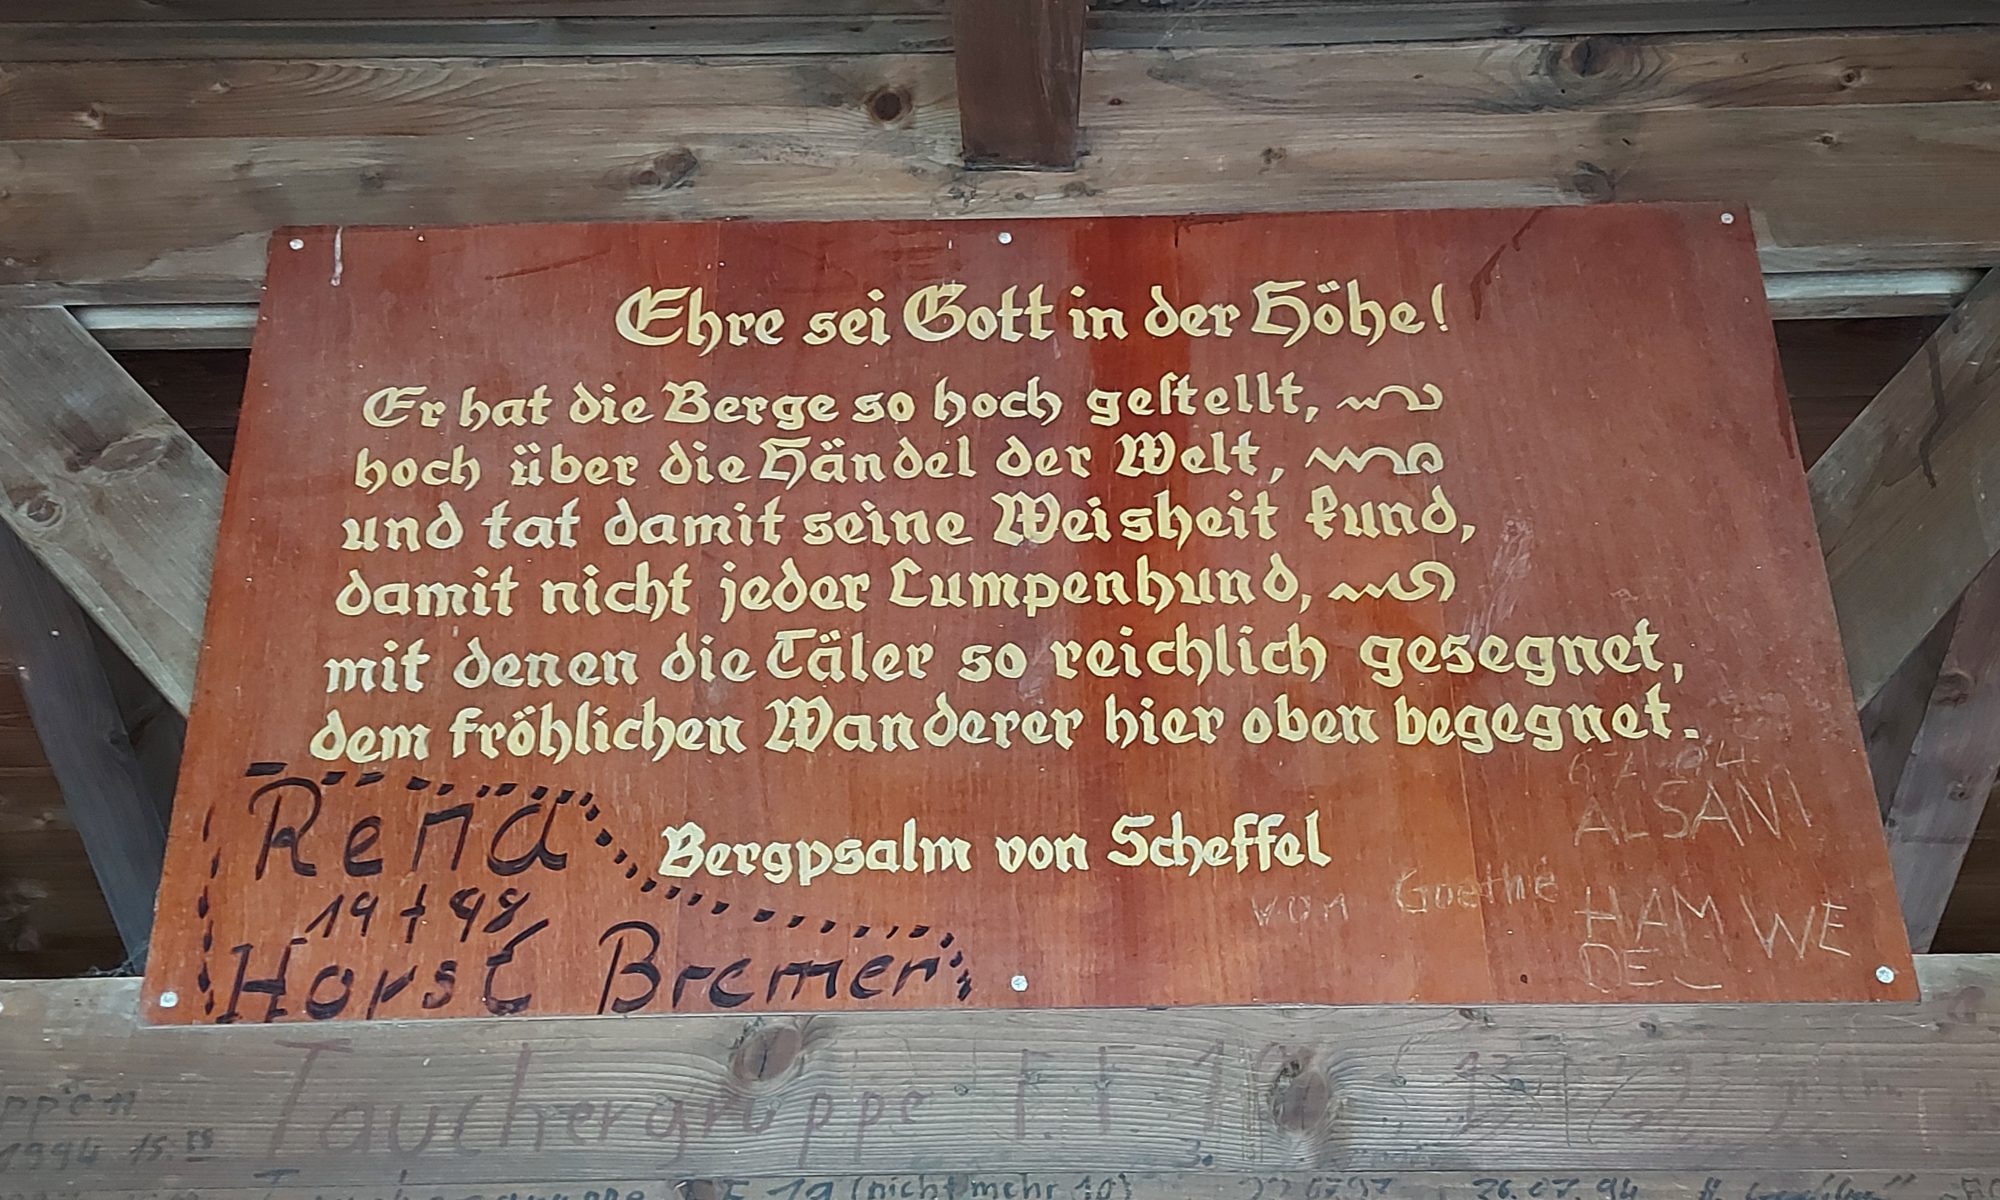 Ehre sei Gott in der Höhe!
Er hat die Berge so hoch geſtellt,
hoch über die Händel der Welt,
und tat damit seine Weisheit kund,
damit nicht jeder Lumpenhund,
mit denen die Täler so reichlich gesegnet,
dem fröhlichen Wanderer hier oben begegnet.
Bergpsalm von Scheffel
von Goethe
ALSANI
HAM WE
DEL
Rena
19 + 98
Horst Bremer
Tauchergruppe F.F. 10
1994 15.
(nicht mehr 10)
26.07.94